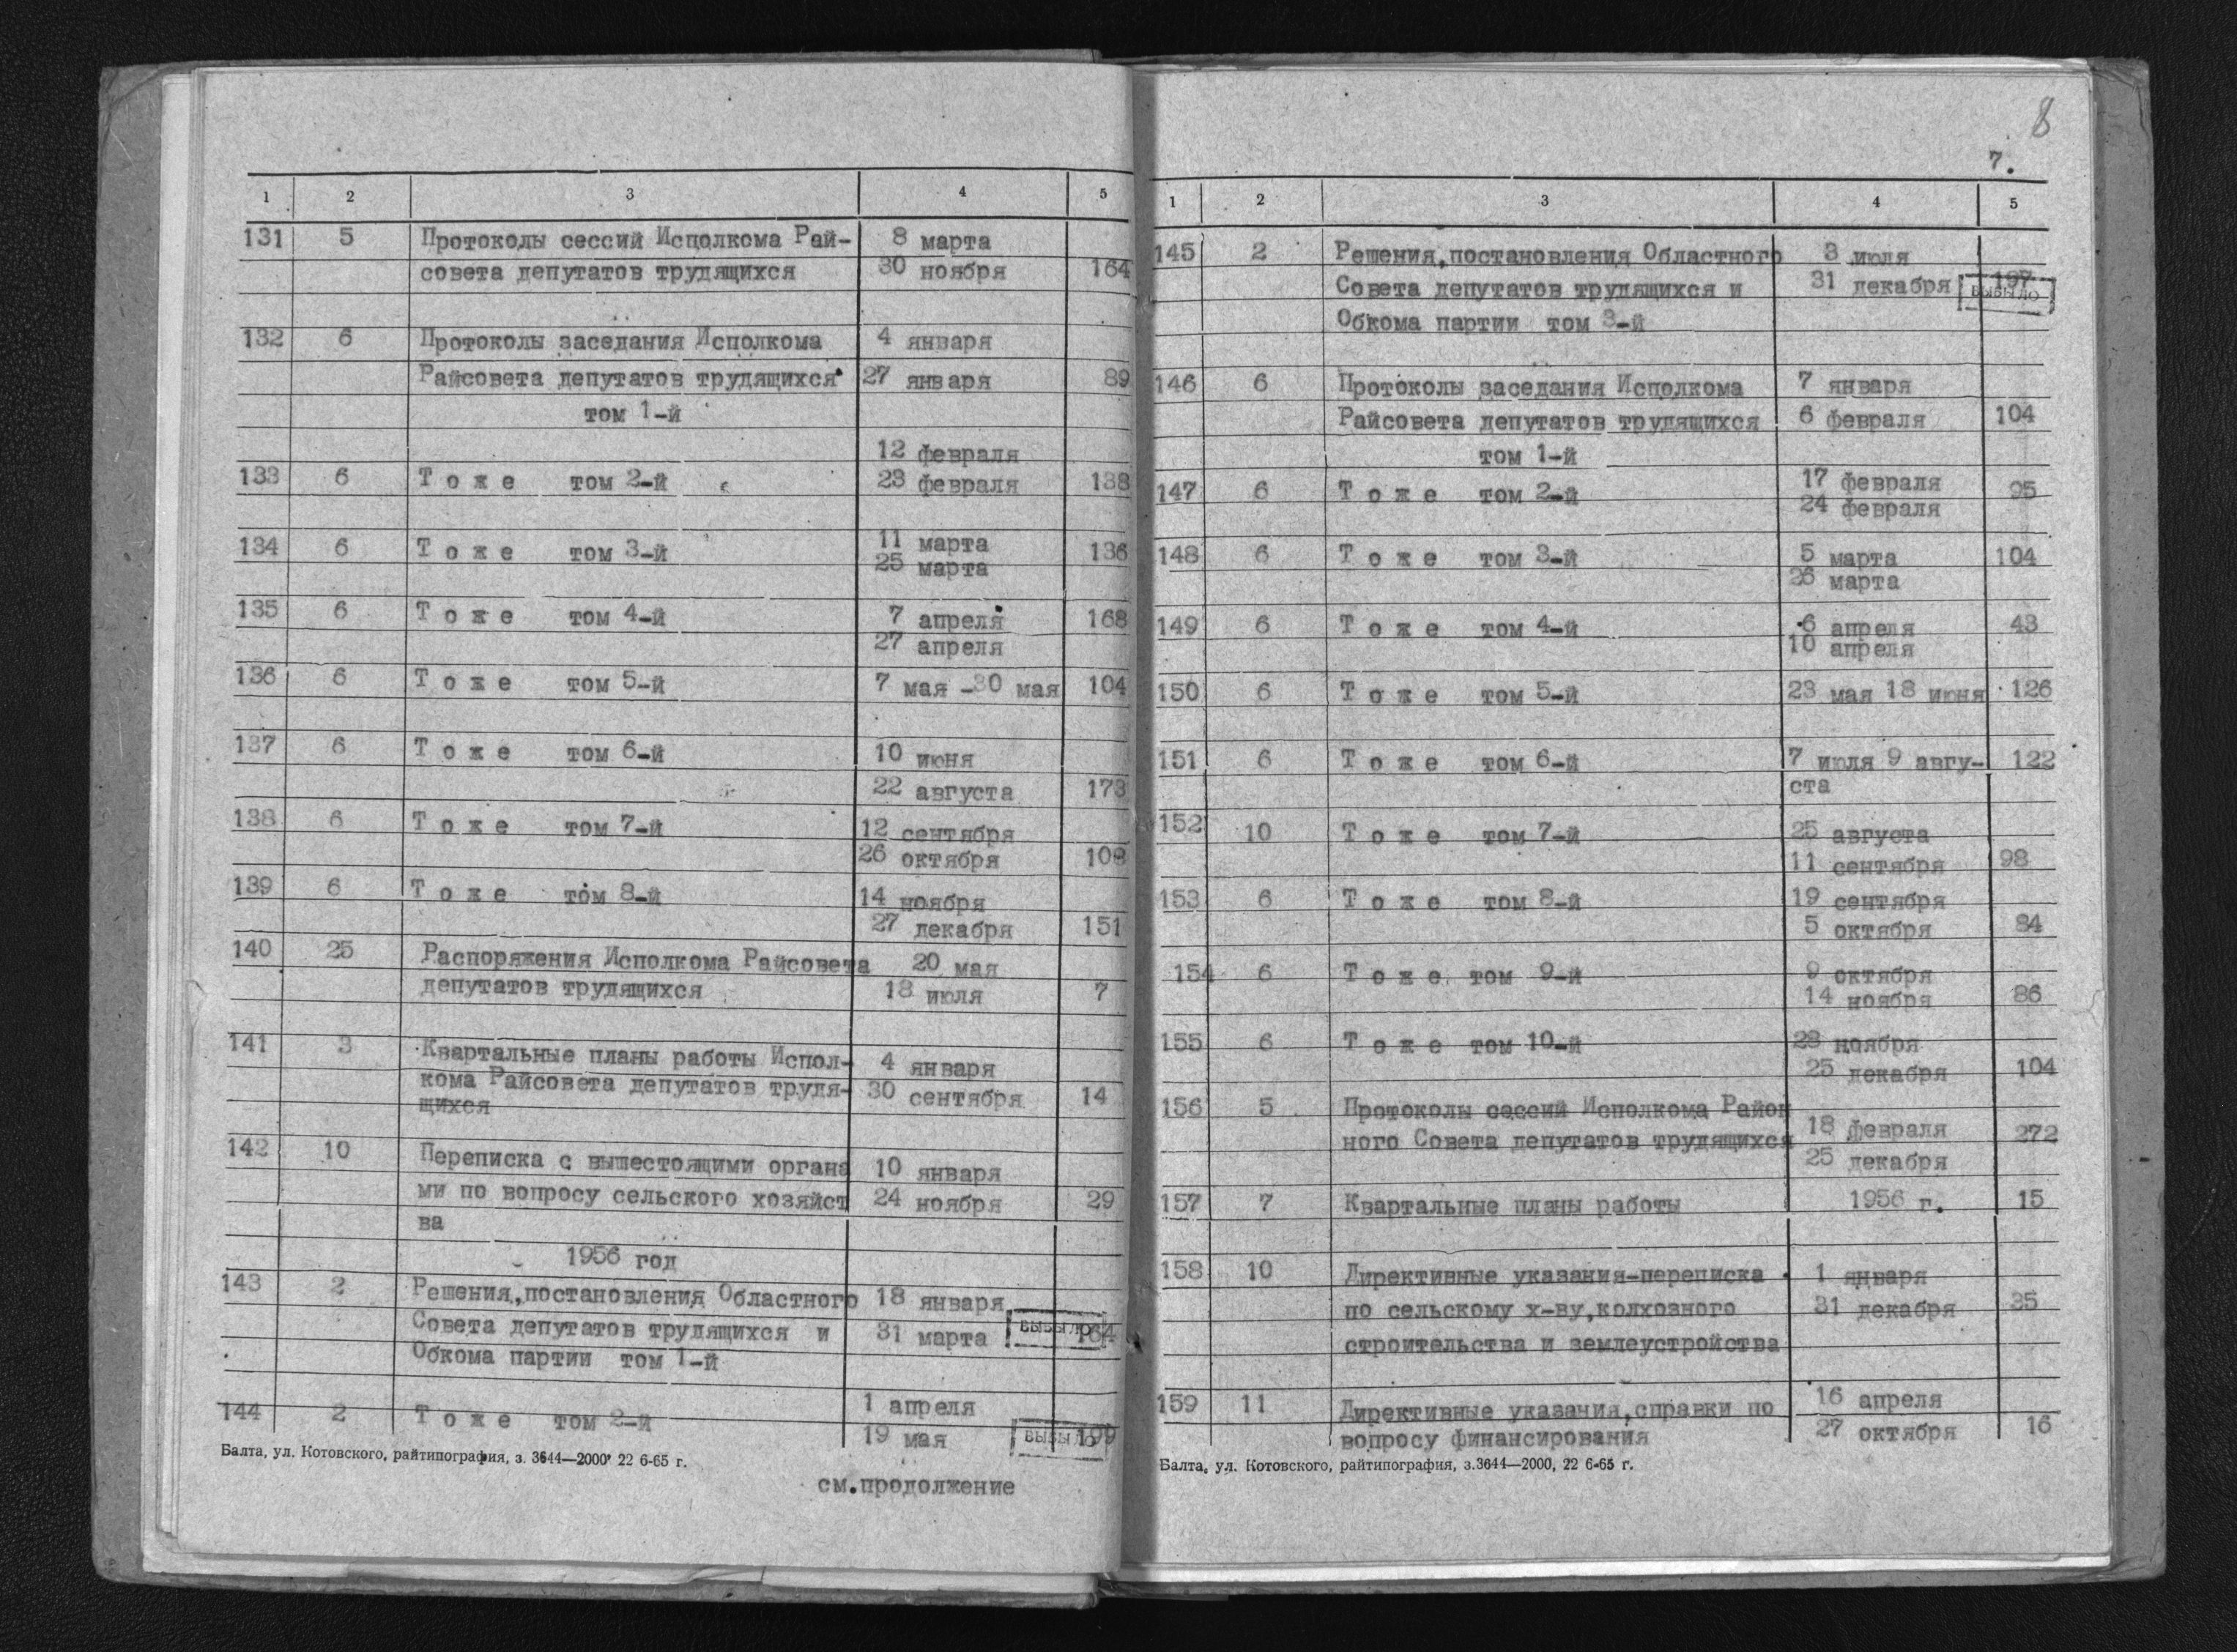 1 2 3 4 5
131 5 Протоколы сессий Исполкома Рай- 8 марта
совета депутатов трудящихся 30 ноября 164
132 6 Протоколы заседания Исполкома 4 января
Райсовета депутатов трудящихся 27 января 89
том 1-й
12 февраля
133 6 Т о ж е том 2-й 23 февраля 138
134 6 Т о ж е том 3-й 11 марта 136
25 марта
135 6 Т о ж е том 4-й 7 апреля 168
27 апреля
136 6 Т о ж е том 5-й 7 мая -30 мая 104
137 6 Т о ж е том 6-й 10 июня
22 августа 173
138 6 Т о ж е том 7-й 12 сентября
26 октября 108
139 6 Т о ж е том 8-й 14 ноября
27 декабря 151
140 25 Распоряжения Исполкома Райсовета 20 мая
депутатов трудящихся 18 июля 7
141 3 Квартальные планы работы Испол- 4 января
кома Райсовета депутатов трудя- 30 сентября 14
щихся
142 10 Переписка с вышестоящими органа 10 января
ми по вопросу сельского хозяйст 24 ноября 29
ва
1956 год
143 2 Решения,постановления Областного 18 января
Совета депутатов трудящихся и 31 марта ВЫБЫЛО 164
Обкома партии том 1-й
1 апреля
144 2 Т о ж е том 2-й
19 мая ВЫБЫЛО 199
Балта, ул. Котовского, райтипография, з. 3644—2000, 22 6-65 г.
см.продолжение
8
7.
1 2 3 4 5
145 2 Решения,постановления Областного 3 июля
Совета депутатов трудящихся и 31 декабря 197 ВЫБЫЛО
Обкома партии том 3-й
146 6 Протоколы заседания Исполкома 7 января
Райсовета депутатов трудящихся 6 февраля 104
том 1-й
147 6 Т о ж е том 2-й 17 февраля 95
24 февраля
148 6 Т о ж е том 3-й 5 марта 104
26 марта
149 6 Т о ж е том 4-й 6 апреля 43
10 апреля
150 6 Т о ж е том 5-й 23 мая 18 июня 126
151 6 Т о ж е том 6-й 7 июля 9 авгу- 122
ста
152 10 Т о ж е том 7-й 25 августа
11 сентября 98
153 6 Т о ж е том 8-й 19 сентября
5 октября 84
154 6 Т о ж е том 9-й 9 октября
14 ноября 86
155 6 Т о ж е том 10-й 23 ноября
25 декабря 104
156 5 Протоколы сессий Исполкома Район
ного Совета депутатов трудящихся 18 февраля 272
25 декабря
157 7 Квартальные планы работы 1956 г. 15
158 10 Директивные указания-переписка 1 января
по сельскому х-ву,колхозного 31 декабря 35
строительства и землеустройства
159 11 Директивные указания,справки по 16 апреля
вопросу финансирования 27 октября 16
Балта, ул. Котовского, райтипография, з.3644—2000, 22 6-65 г.